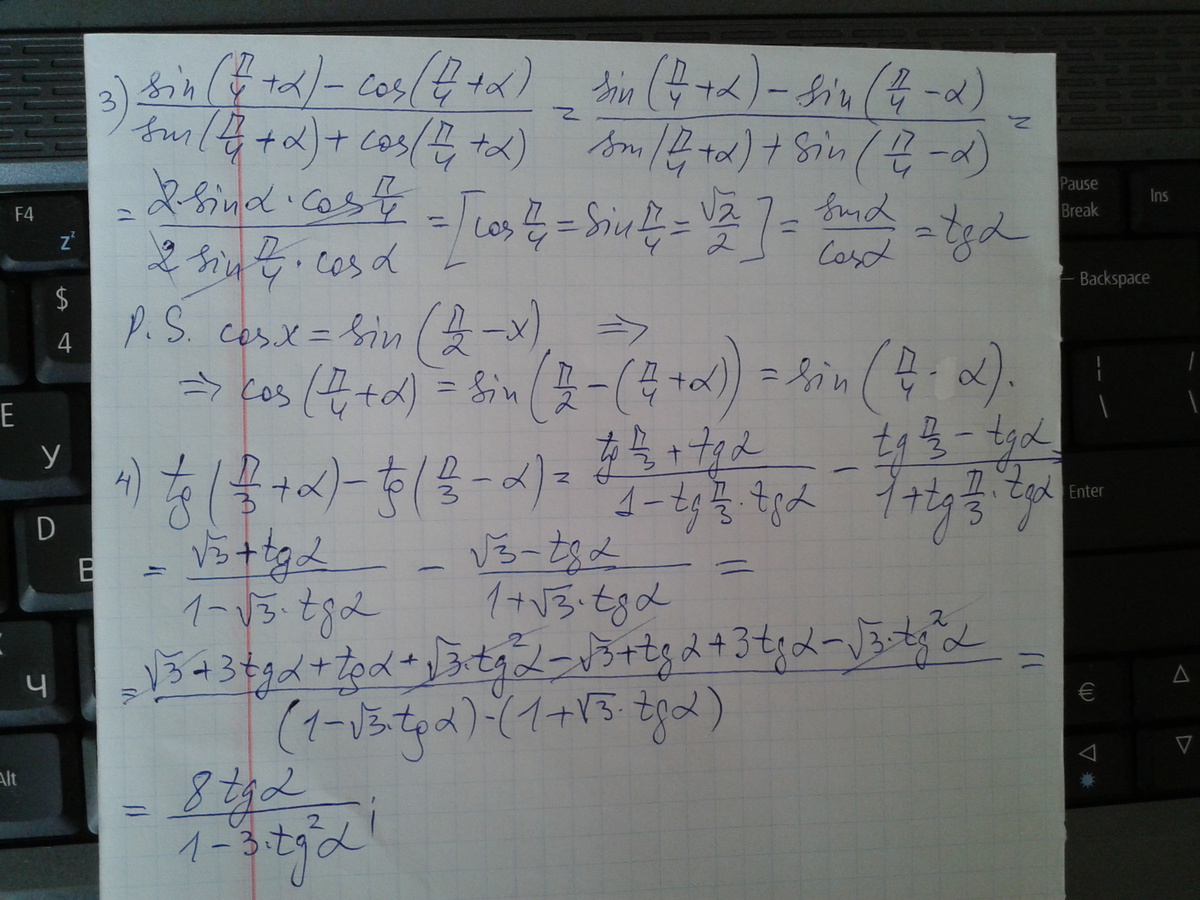 3) (sin(π/4+α) − cos(π/4+α))/(sin(π/4+α) + cos(π/4+α)) = (sin(π/4+α) − sin(π/4−α))/(sin(π/4+α) + sin(π/4−α)) =
= (2·sinα·cos π/4)/(2 sin π/4·cosα) = [cos π/4 = sin π/4 = √2/2] = sinα/cosα = tgα
P.S. cosx = sin(π/2−x) ⇒
⇒ cos(π/4+α) = sin(π/2−(π/4+α)) = sin(π/4 - α).
4) tg(π/3+α) − tg(π/3−α) = (tg π/3 + tgα)/(1−tg π/3·tgα) − (tg π/3 − tgα)/(1+tg π/3·tgα)
= (√3+tgα)/(1−√3·tgα) − (√3−tgα)/(1+√3·tgα) =
= (√3+3tgα+tgα+√3·tg²α−√3+tgα+3tgα−√3·tg²α)/((1−√3·tgα)·(1+√3·tgα)) =
= 8tgα/(1−3·tg²α);
F4
zᶻ
$
4
Е
У
D
В
Ч
Alt
Pause
Break
Ins
Backspace
Enter
€